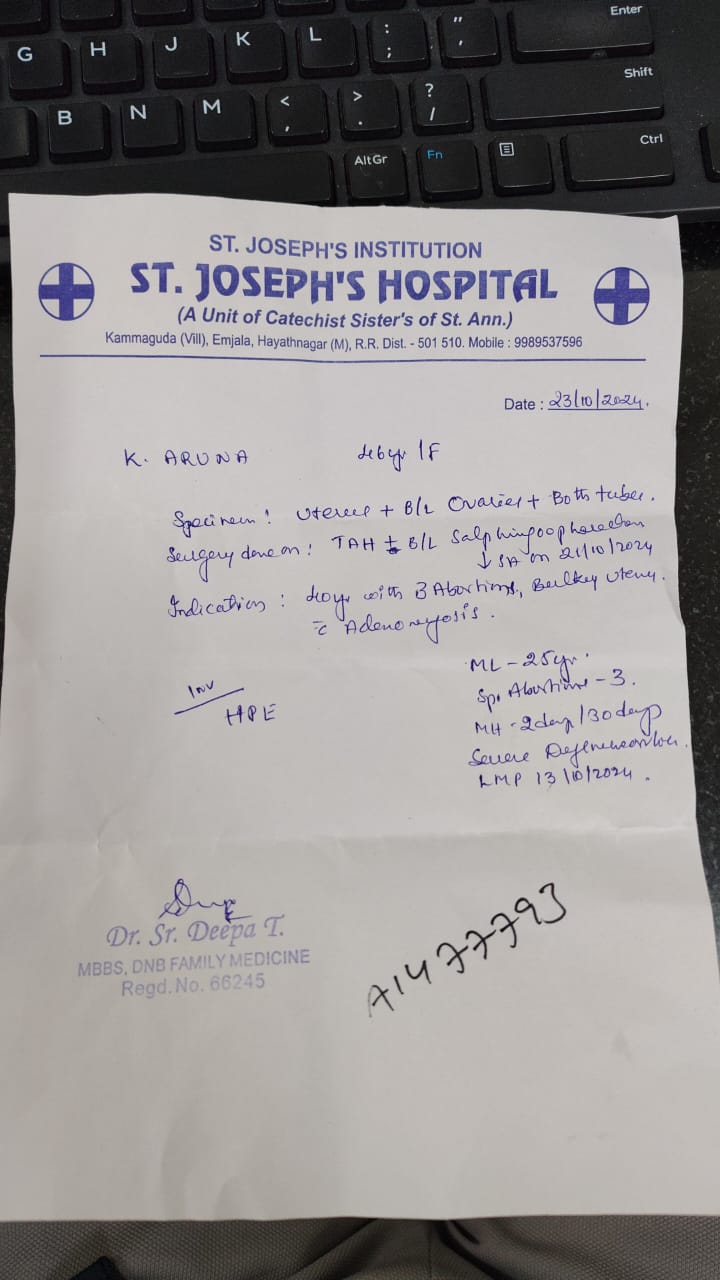 G H J K L : ; " ' Enter
B N M < , > . ? / Shift
AltGr Fn Ctrl
ST. JOSEPH'S INSTITUTION
ST. JOSEPH'S HOSPITAL
(A Unit of Catechist Sister's of St. Ann.)
Kammaguda (Vill), Emjala, Hayathnagar (M), R.R. Dist. - 501 510. Mobile : 9989537596
Date : 23/10/2024.
K. ARUNA 46yr/F
Specimen : Uterus + B/L Ovaries + Both tubes.
Surgery done on : TAH ± B/L
↓ SA on 21/10/2024
Indication : with 3 Abortions, Bulky Uterus.
c̄ Adenomyosis.
ML - 25yr.
Sp. Abortions - 3.
MH - 2days/30days
Severe
LMP 13/10/2024.
Inv
HPE
Dr. Sr. Deepa T.
MBBS, DNB FAMILY MEDICINE
Regd. No. 66245
A1477793